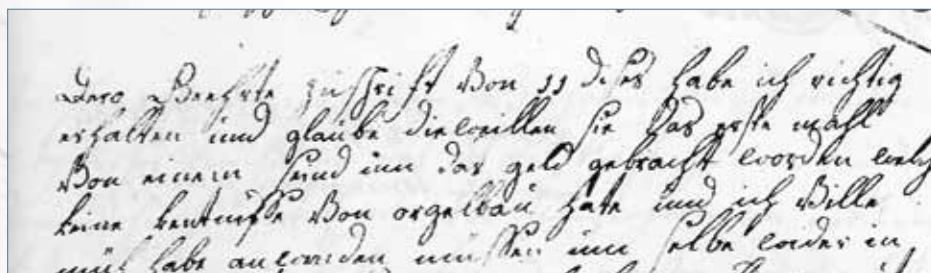 Dero Geehrte zuschrift Von 11 dises habe ich richtig
erhalten und glaube dieweillen sie das erste mahl
Von einem seind um das geld gebracht worden welch
keine kentnusse Von orgelbau hate und ich Ville
müh habe anwenden müssen um selbe wider in